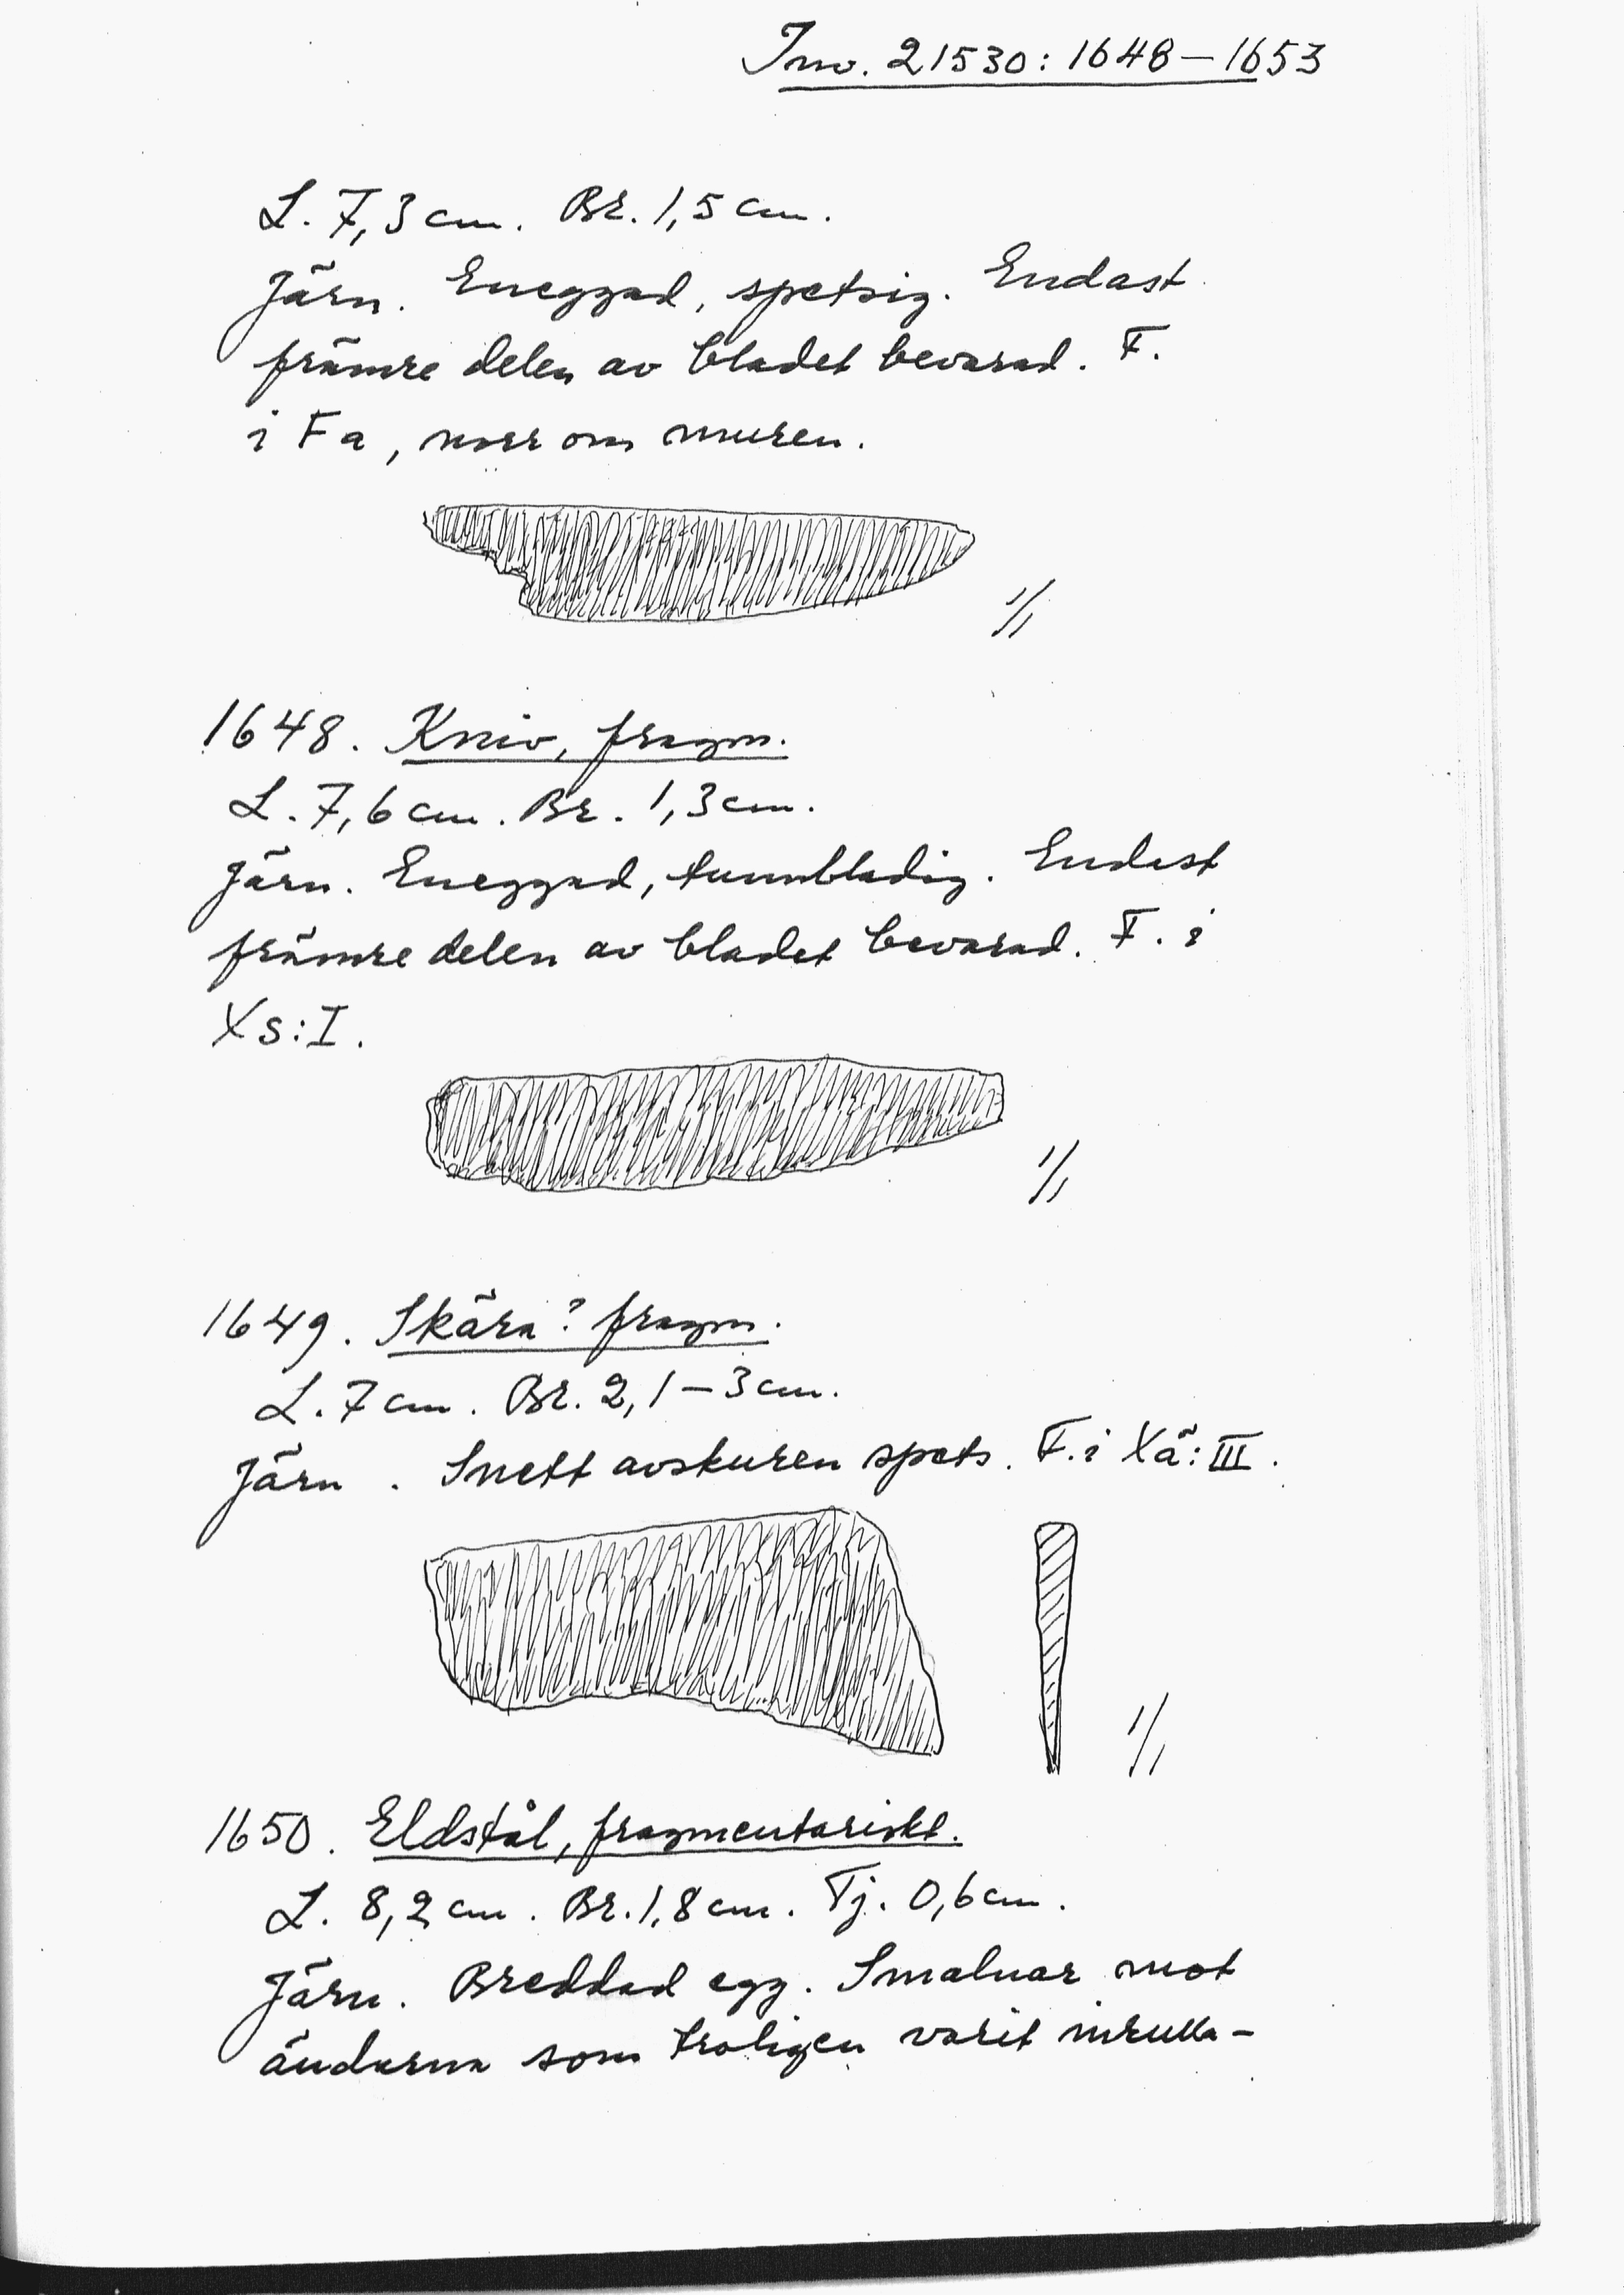 Inv. 21530: 1648–1653
L. 7,3 cm. Br. 1,5 cm.
Järn. Eneggad, spetsig. Endast
främre delen av bladet bevarad. F.
i Fa, norr om muren.
1/1
1648. Kniv, fragm.
L. 7,6 cm. Br. 1,3 cm.
Järn. Eneggad, tunnbladig. Endast
främre delen av bladet bevarad. F. i
Xs:I.
1/1
1649. Skära? fragm.
L. 7 cm. Br. 2,1–3 cm.
Järn. Snett avskuren spets. F. i Xä:III.
1/1
1650. Eldstål, fragmentariskt.
L. 8,2 cm. Br. 1,8 cm. Tj. 0,6 cm.
Järn. Breddad egg. Smalnar mot
ändarna som troligen varit inrulla-